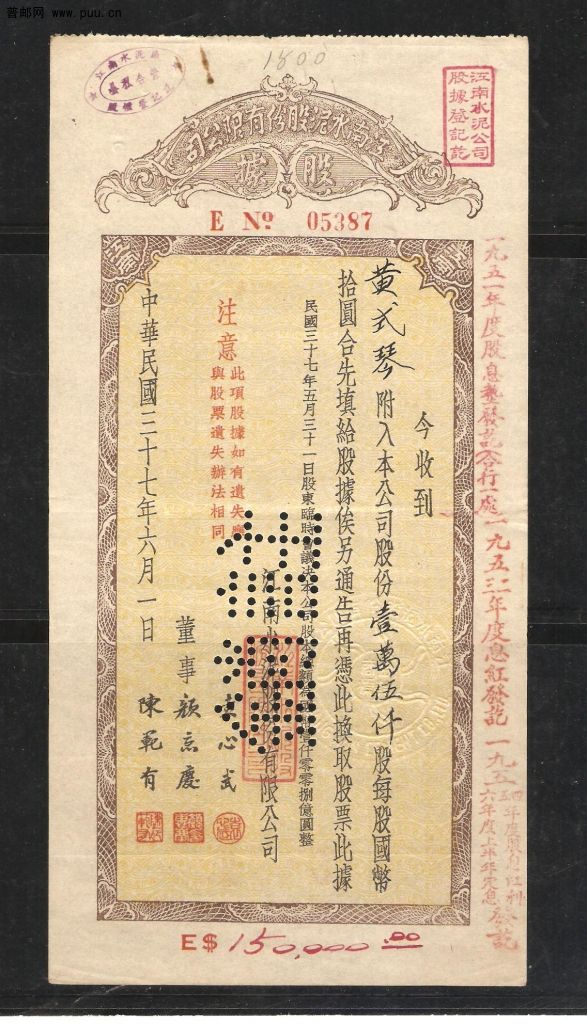 普邮网 www.puu.cn
1500
江南水泥公司
股據登記訖
江南水泥股份有限公司
股據
E No 05387
今收到
黃式琴附入本公司股份壹萬伍仟股每股國幣
拾圓合先填給股據俟另通告再憑此換取股票此據
民國三十七年五月三十一日股東臨時會議決本公司股本總額
零零捌億圓整
江南水泥股份有限公司
注意
此項股據如有遺失應
與股票遺失辦法相同
董事
顏惠慶
陳範有
中華民國三十七年六月一日
E$ 150,000.00
一九五一年度股息墊發訖
一九五二年度息紅發訖
一九五